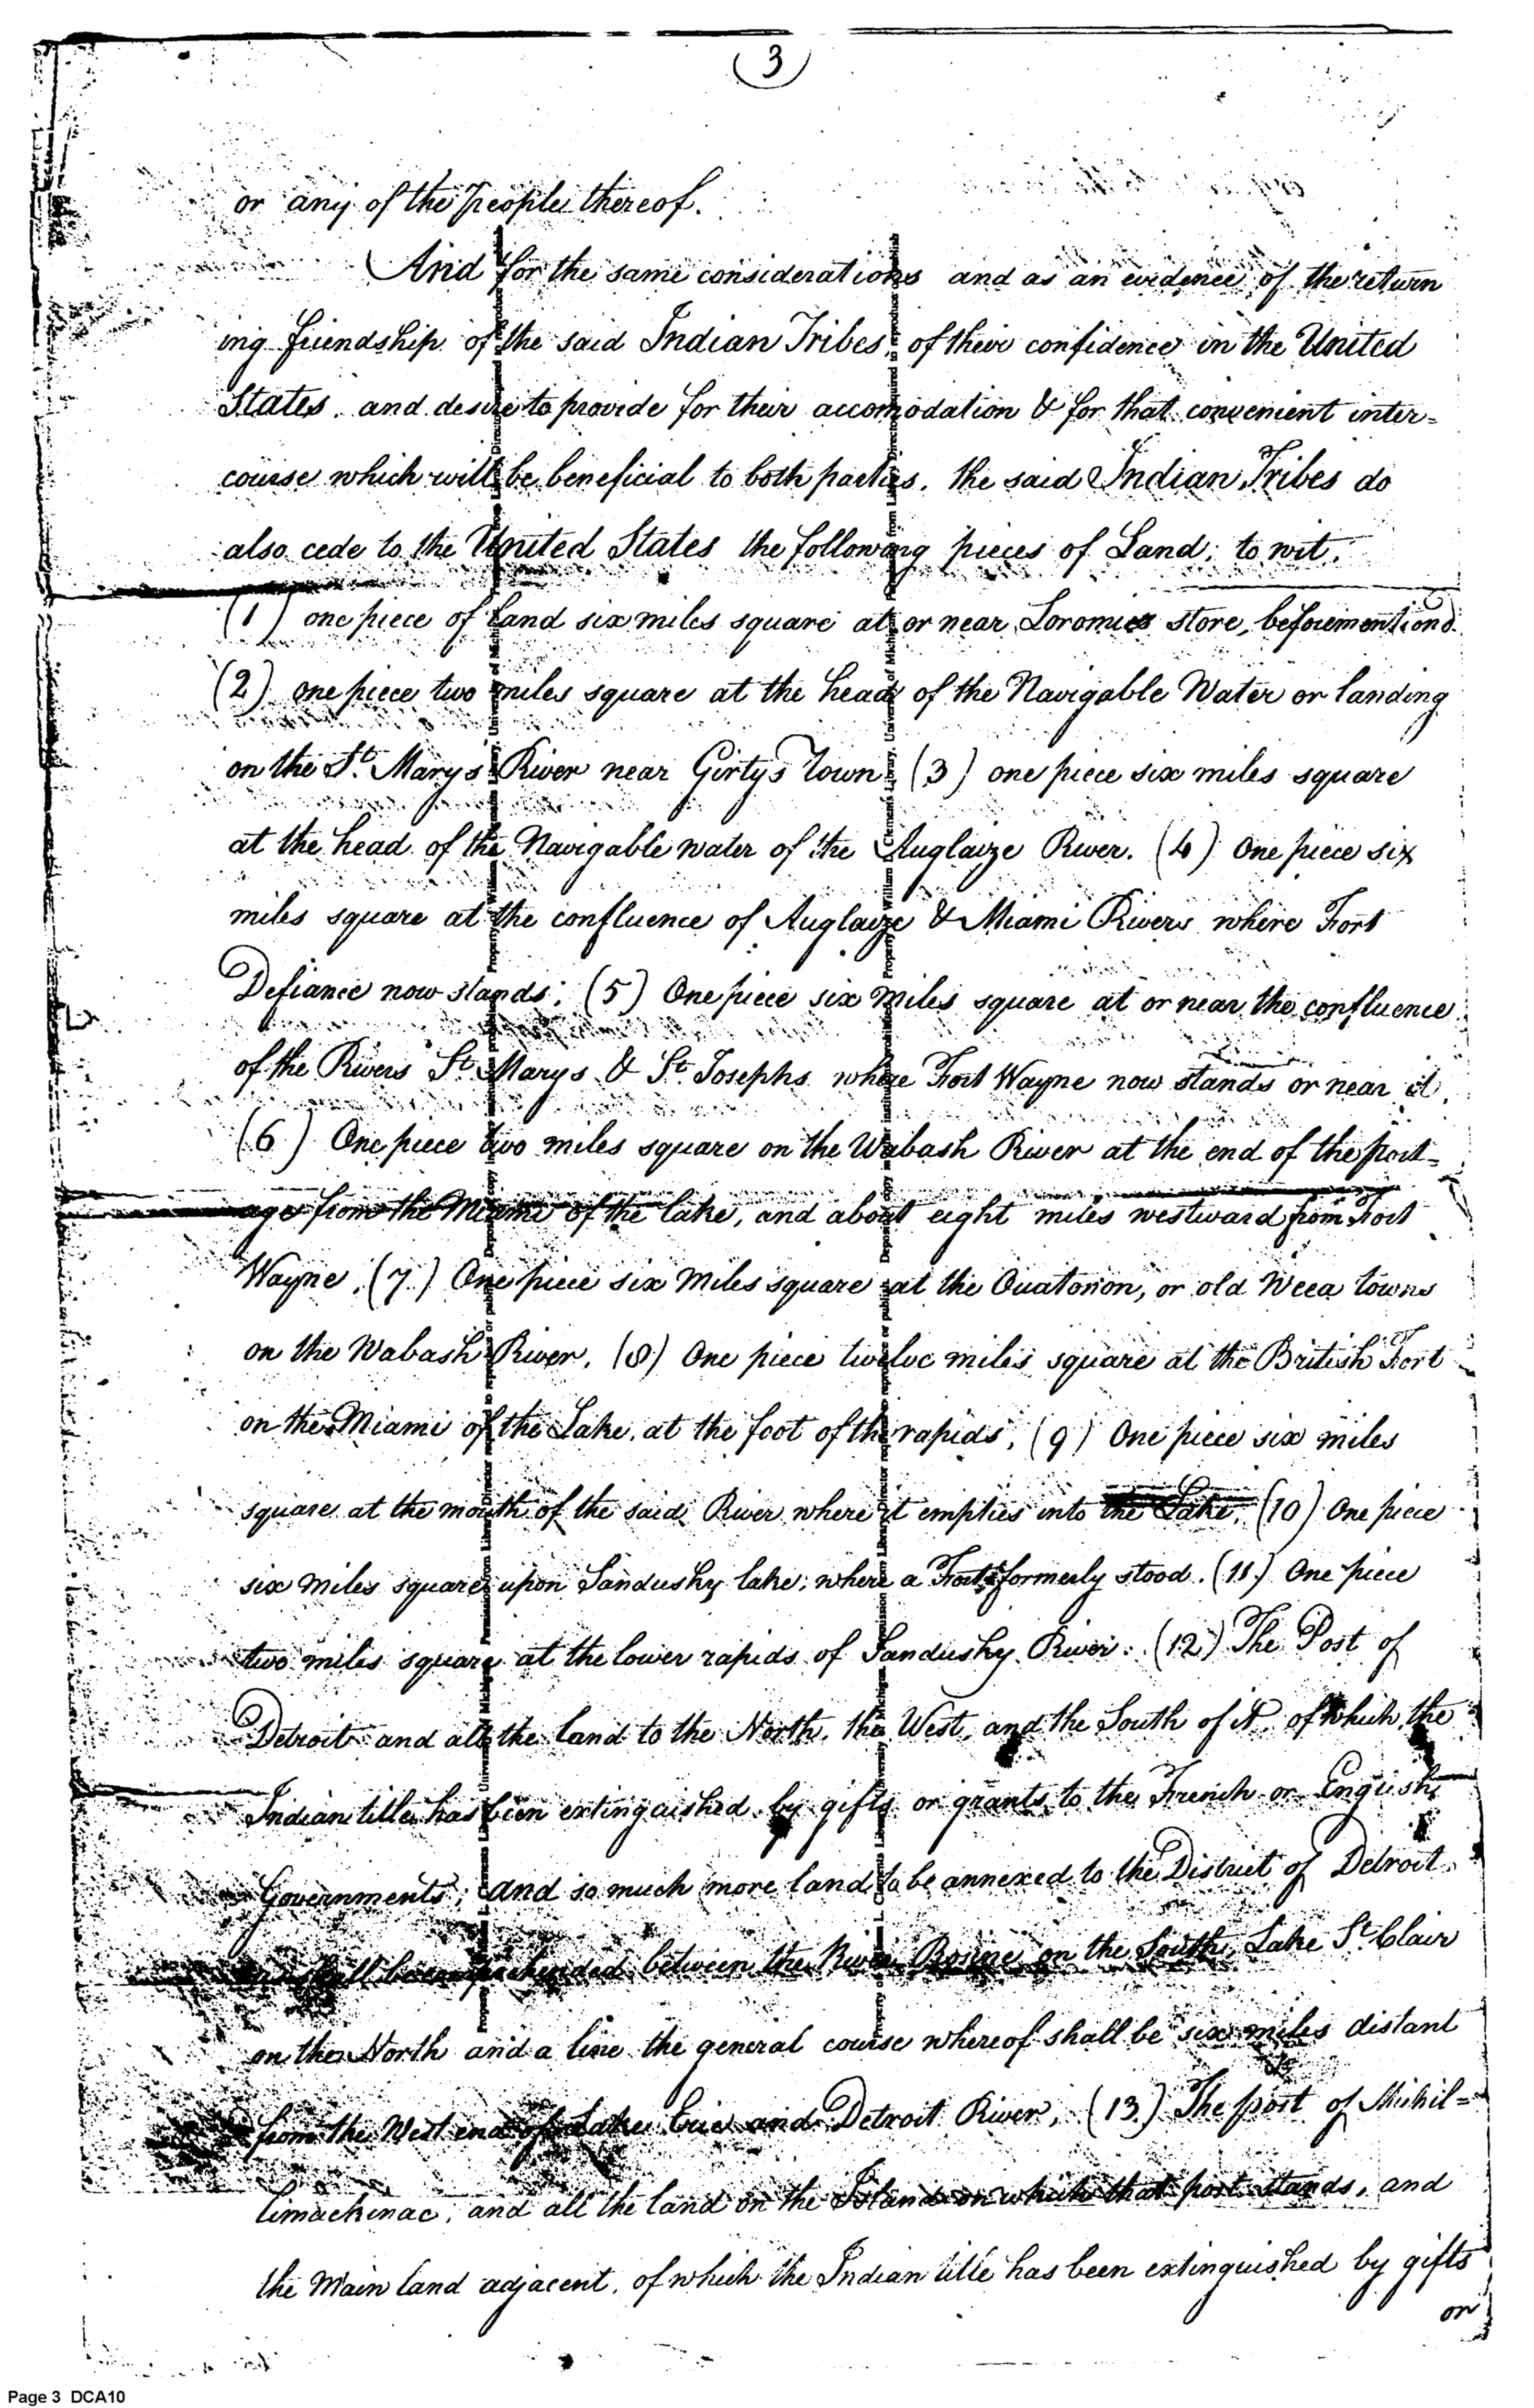 3
or any of the People thereof.
And for the same considerations and as an evidence of the return
ing friendship of the said Indian Tribes, of their confidence in the United
States, and desire to provide for their accomodation & for that convenient inter=
course which will be beneficial to both parties, the said Indian Tribes do
also cede to the United States the following pieces of Land, to wit,
(1) one piece of land six miles square at or near Loromies store, beforementiond.
(2) one piece two miles square at the head of the Navigable Water or landing
on the St. Marys River near Girtys Town, (3) one piece six miles square
at the head of the Navigable water of the Auglaize River. (4) One piece six
miles square at the confluence of Auglaize & Miami Rivers where Fort
Defiance now stands; (5) One piece six Miles square at or near the confluence
of the Rivers St Marys & St. Josephs where Fort Wayne now stands or near it.
(6) One piece two miles square on the Wabash River at the end of the port=
age from the Miami of the lake, and about eight miles westward from Fort
Wayne, (7) One piece six Miles square at the Ouatonon, or old Weea towns
on the Wabash River, (8) One piece twelve miles square at the British Fort
on the Miami of the Lake, at the foot of the rapids, (9) One piece six miles
square at the mouth of the said River where it empties into the Lake, (10) One piece
six miles square upon Sandusky lake, where a Fort formerly stood. (11) One piece
two miles square at the lower rapids of Sandusky River. (12) The Post of
Detroit and all the land to the North, the West, and the South of it of which the
Indian title has been extinguished by gifts or grants to the French or English
Governments, and so much more land to be annexed to the District of Detroit
shall be comprehended between the River Rosine on the South, Lake St. Clair
on the North and a line the general course whereof shall be six miles distant
from the West end of Lake Erie and Detroit River, (13) The post of Michil=
limackinac, and all the land on the Island on which that post stands, and
the Main land adjacent, of which the Indian title has been extinguished by gifts
or
Page 3 DCA10